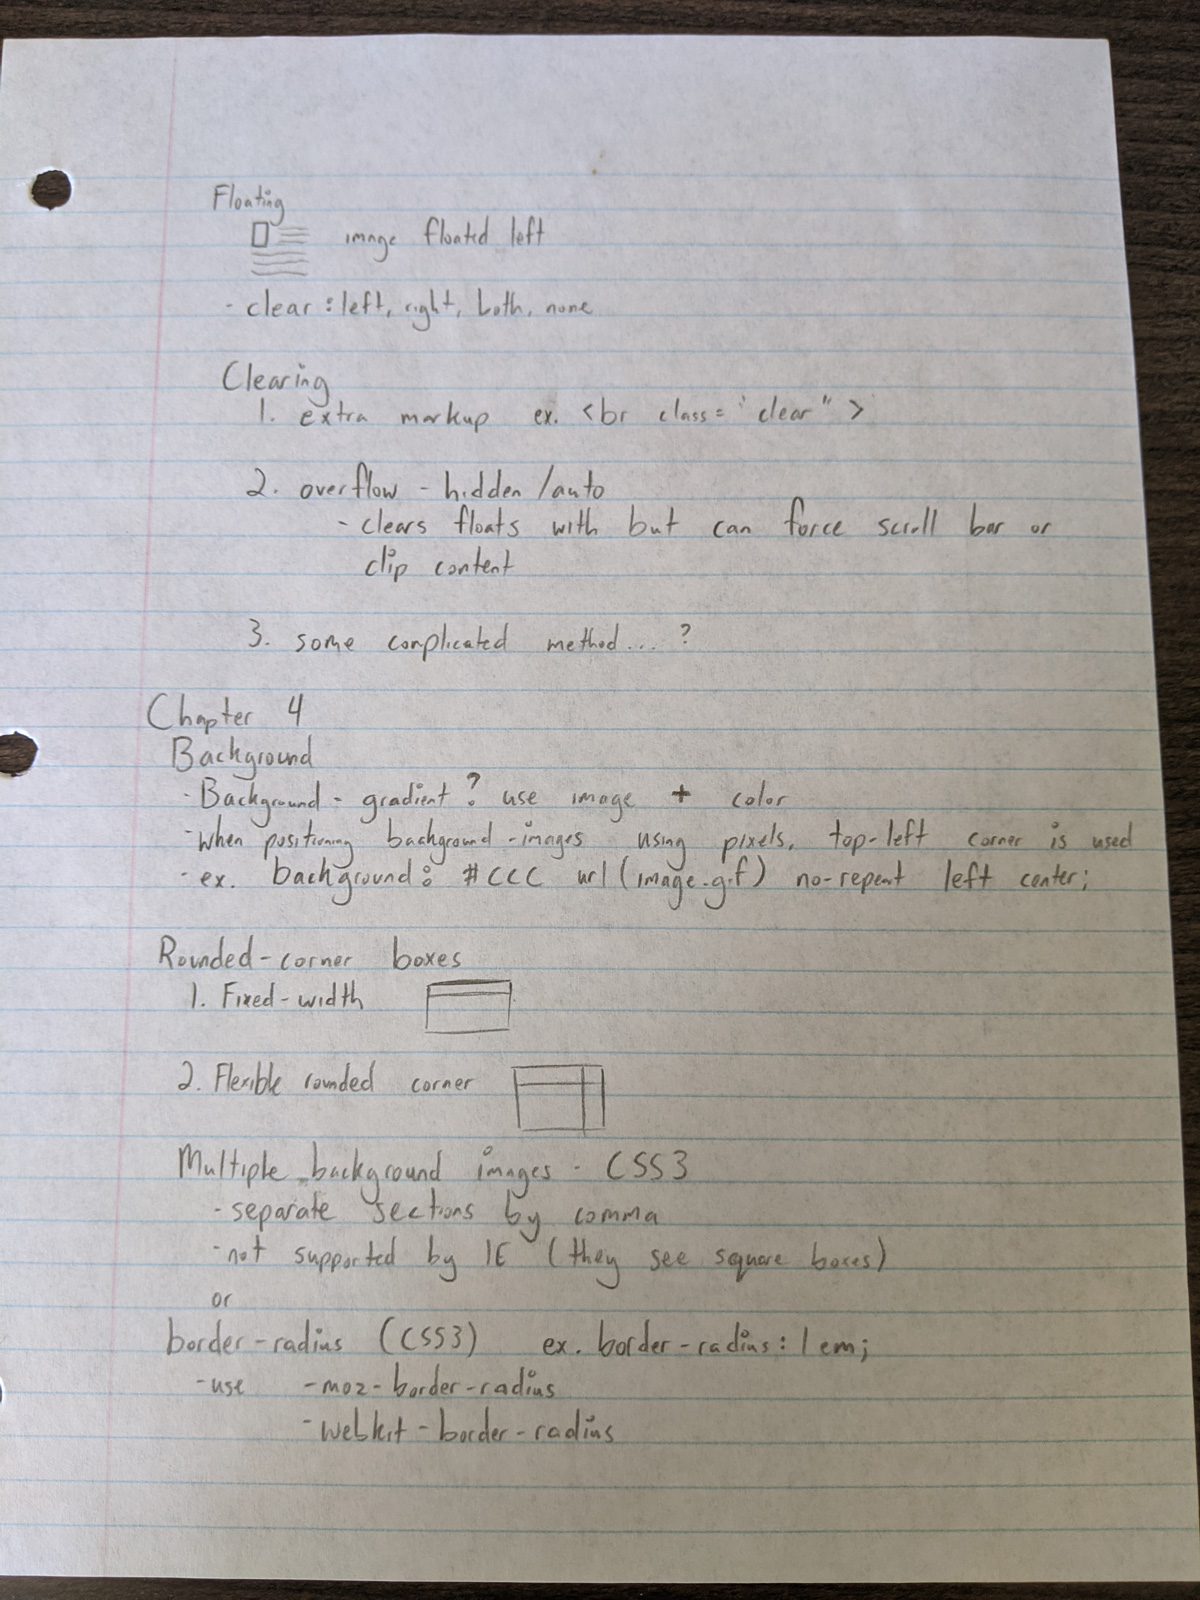 Floating
image floated left
- clear : left, right, both, none
Clearing
1. extra markup ex. <br class="clear">
2. overflow - hidden/auto
- clears floats with but can force scroll bar or
clip content
3. some complicated method... ?
Chapter 4
Background
- Background - gradient? use image + color
- when positioning background-images using pixels, top-left corner is used
- ex. background: #CCC url(image.gif) no-repeat left center;
Rounded-corner boxes
1. Fixed-width
2. Flexible rounded corner
Multiple background images - CSS3
- separate sections by comma
- not supported by IE (they see square boxes)
or
border-radius (CSS3) ex. border-radius: 1em;
- use -moz-border-radius
-webkit-border-radius